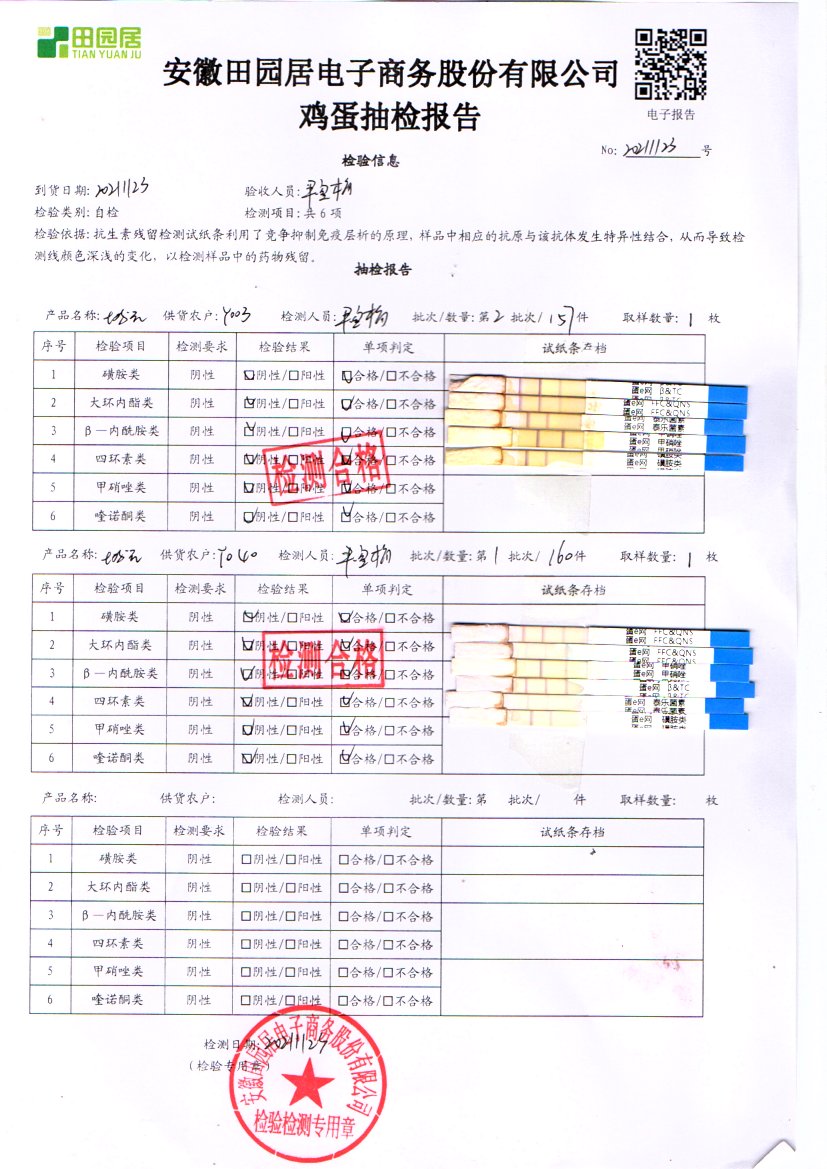 田园居
TIAN YUAN JU
安徽田园居电子商务股份有限公司
鸡蛋抽检报告
电子报告
No: 20211123 号
检验信息
到货日期: 20211123 验收人员:
检验类别: 自检 检测项目: 共 6 项
检验依据: 抗生素残留检测试纸条利用了竞争抑制免疫层析的原理, 样品中相应的抗原与该抗体发生特异性结合, 从而导致检
测线颜色深浅的变化, 以检测样品中的药物残留。
抽检报告
产品名称: 供货农户: Y003 检测人员: 批次/数量: 第 2 批次/ 157 件 取样数量: 1 枚
序号 检验项目 检测要求 检验结果 单项判定 试纸条存档
1 磺胺类 阴性 ☑阴性/□阳性 ☑合格/□不合格
2 大环内酯类 阴性 ☑阴性/□阳性 ☑合格/□不合格
3 β—内酰胺类 阴性 ☑阴性/□阳性 ☑合格/□不合格
4 四环素类 阴性 ☑阴性/□阳性 ☑合格/□不合格
5 甲硝唑类 阴性 ☑阴性/□阳性 ☑合格/□不合格
6 喹诺酮类 阴性 ☑阴性/□阳性 ☑合格/□不合格
检测合格
蛋e网 β&TC
蛋e网 FFC&QNS
蛋e网 泰乐菌素
蛋e网 甲硝唑
蛋e网 磺胺类
产品名称: 供货农户: Y040 检测人员: 批次/数量: 第 1 批次/ 160 件 取样数量: 1 枚
序号 检验项目 检测要求 检验结果 单项判定 试纸条存档
1 磺胺类 阴性 ☑阴性/□阳性 ☑合格/□不合格
2 大环内酯类 阴性 ☑阴性/□阳性 ☑合格/□不合格
3 β—内酰胺类 阴性 ☑阴性/□阳性 ☑合格/□不合格
4 四环素类 阴性 ☑阴性/□阳性 ☑合格/□不合格
5 甲硝唑类 阴性 ☑阴性/□阳性 ☑合格/□不合格
6 喹诺酮类 阴性 ☑阴性/□阳性 ☑合格/□不合格
检测合格
蛋e网 FFC&QNS
蛋e网 FFC&QNS
蛋e网 甲硝唑
蛋e网 β&TC
蛋e网 泰乐菌素
蛋e网 磺胺类
产品名称: 供货农户: 检测人员: 批次/数量: 第 批次/ 件 取样数量: 枚
序号 检验项目 检测要求 检验结果 单项判定 试纸条存档
1 磺胺类 阴性 □阴性/□阳性 □合格/□不合格
2 大环内酯类 阴性 □阴性/□阳性 □合格/□不合格
3 β—内酰胺类 阴性 □阴性/□阳性 □合格/□不合格
4 四环素类 阴性 □阴性/□阳性 □合格/□不合格
5 甲硝唑类 阴性 □阴性/□阳性 □合格/□不合格
6 喹诺酮类 阴性 □阴性/□阳性 □合格/□不合格
检测日期: 20211123
(检验专用章)
安徽田园居电子商务股份有限公司
检验检测专用章